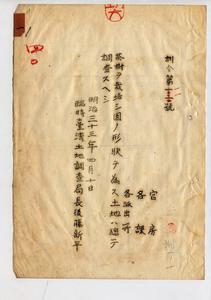 訓令第一三二號
官房
各課
各派出所
茶樹ヲ栽培シ園ノ形狀ヲ爲ス土地ハ總テ
調査スヘシ
明治三十三年四月十日
臨時臺灣土地調査局長後藤新平